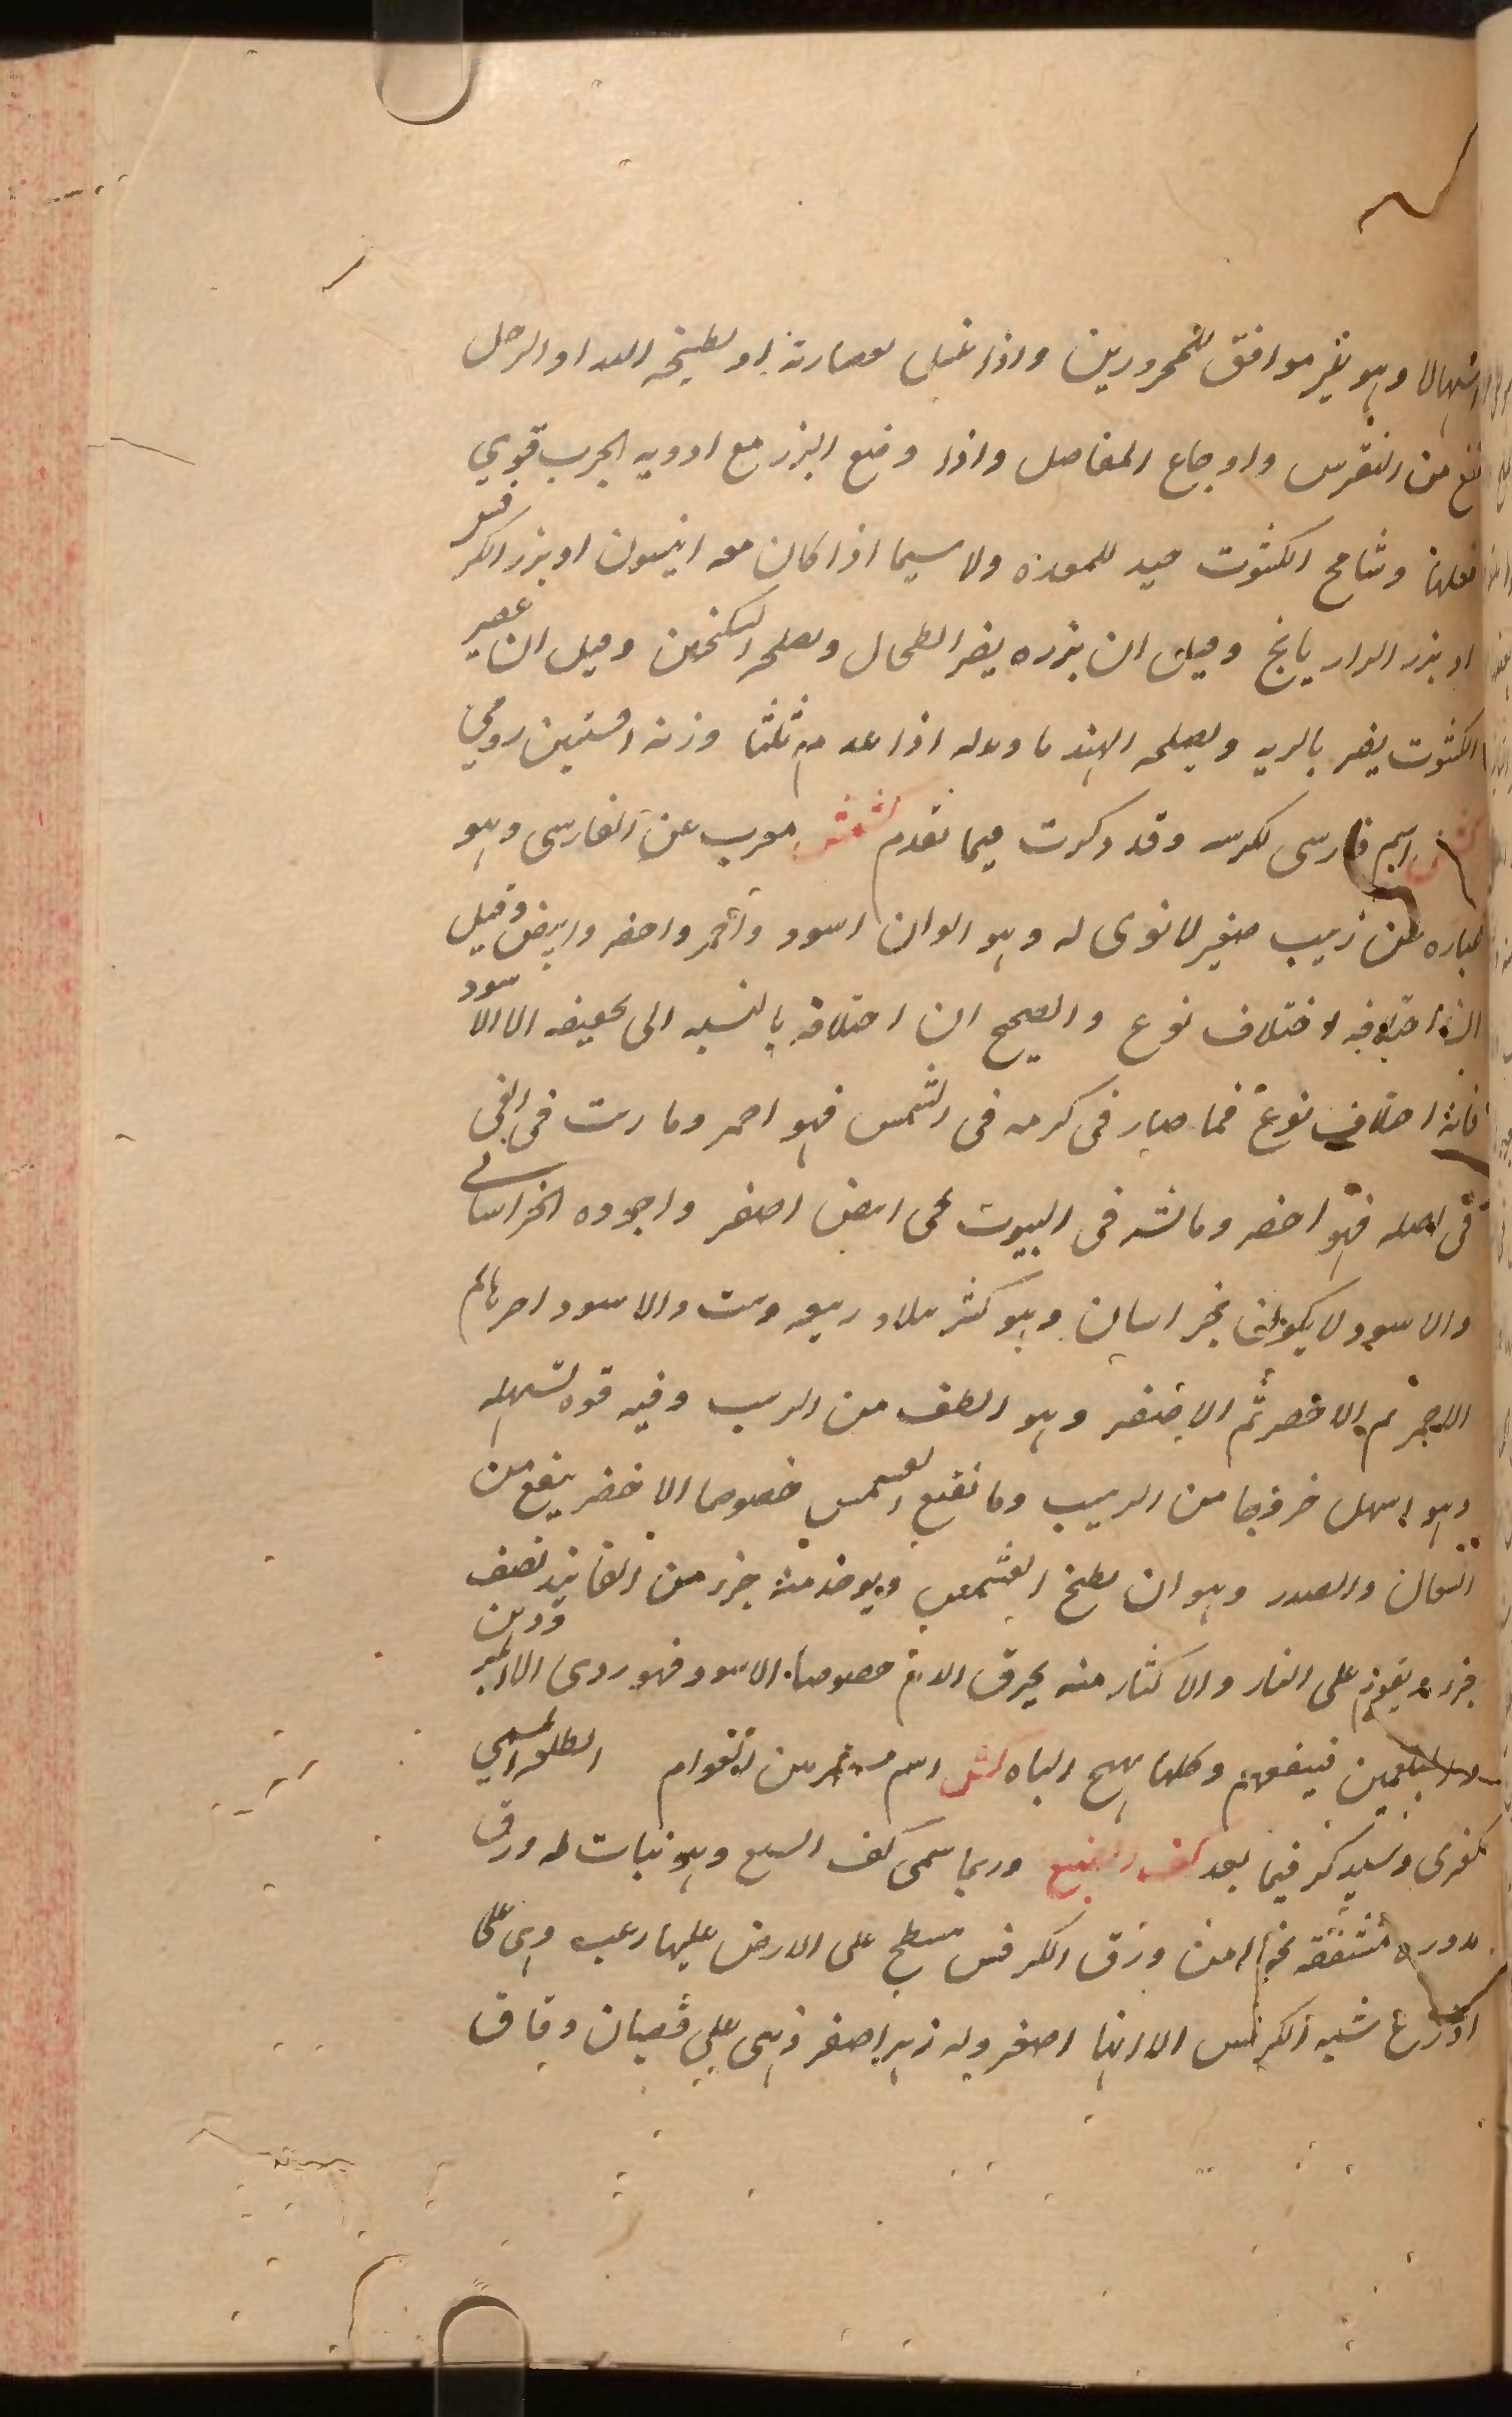 اسهالا وهو غير موافق للمحرورين واذا غسل بعصارته او بطبيخه اليد او الرجل
نفع من النقرس واوجاع المفاصل واذا وضع البزر مع ادويه الجرب قوي
فعلها وشامح الكشوث جيد للمعده ولا سيما اذا كان معه انيسون او بزر الكرفس
او بزر الرازيانج وقيل ان بزره يضر الطحال ويصلحه السكنجبين وقيل ان عصير
الكشوث يضر بالريه ويصلحه الهندبا وبدله اذا عدم ثلثا وزنه افسنتين رومي
اسم فارسي لكرسنه وقد ذكرت فيما تقدم كشمش معرب عن الفارسي وهو
عباره عن زبيب صغير لا نوى له وهو الوان اسود واحمر واخضر وابيض وقيل
ان اختلافه اختلاف نوع والصحيح ان اختلافه بالنسبه الى تجفيفه الا الاسود
فانه اختلاف نوع فما صار في كرمه في الشمس فهو احمر وما ربت في الفي
في اصله فهو اخضر وما نشر في البيوت يجي ابيض اصفر واجوده الخراساني
والاسود لا يكون بخراسان وهو كثير ببلاد ربيعه وست والاسود احرها ثم
الاحمر ثم الاخضر ثم الاصفر وهو الطف من الزبيب وفيه قوه تسهله
وهو اسهل خروجا من الزبيب وما نقيع الكشمش خصوصا الاخضر ينفع من
السعال والصدر وهو ان يطبخ الكشمش ويوخذ منه جزء من الفانيذ نصف
جزء ويقوم على النار والاكثار منه يحرق الدم خصوصا الاسود فهو ردي الا المبرودين
والبلغميين فينفعهم وكلها يهيج الباه كش اسم الطلع المسمى
كفرى وسيذكر فيما بعد كف الضبع وربما سمى كف السبع وهو نبات له ورق
مدوره مشققه نحوا من ورق الكرفس مسطح على الارض عليها زغب وهي على
اذرع شبه الكرفس الا انها اصغر وله زهر اصفر ذهبي على قضبان دقاق